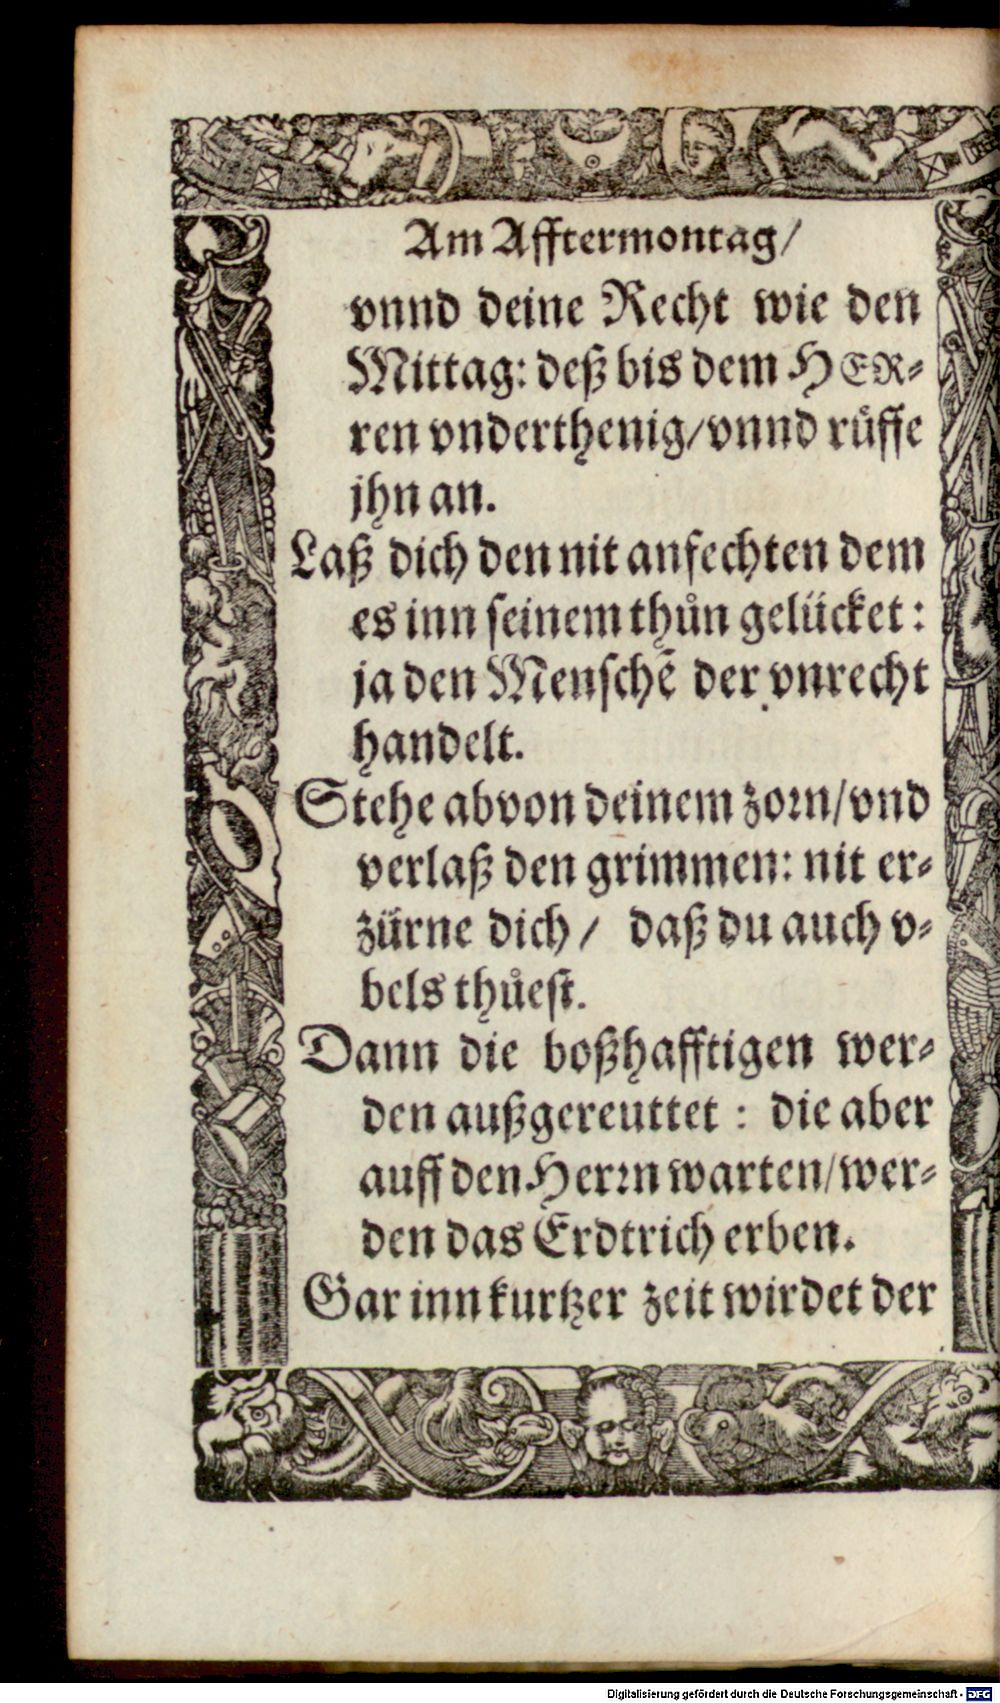 Am Afftermontag/
vnnd deine Recht wie den
Mittag: deß bis dem HER-
ren vnderthenig/vnnd růffe
jhn an.
Laß dich den nit anfechten dem
es inn seinem thůn gelücket:
ja den Menschē der vnrecht
handelt.
Stehe ab von deinem zorn/vnd
verlaß den grimmen: nit er-
zürne dich/ daß du auch v-
bels thůest.
Dann die boßhafftigen wer-
den außgereuttet: die aber
auff den Herrn warten/wer-
den das Erdtrich erben.
Gar inn kurtzer zeit wirdet der
Digitalisierung gefördert durch die Deutsche Forschungsgemeinschaft - DFG